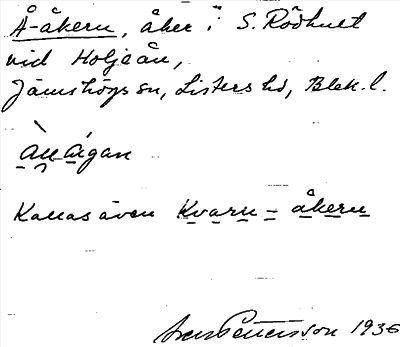 Å-åkern, åker i S. Rödhult
vid Holjeån,
Jämshögs sn, Listers hd, Blek. l.
Kallas även Kvarn-åkern
Pettersson 1936